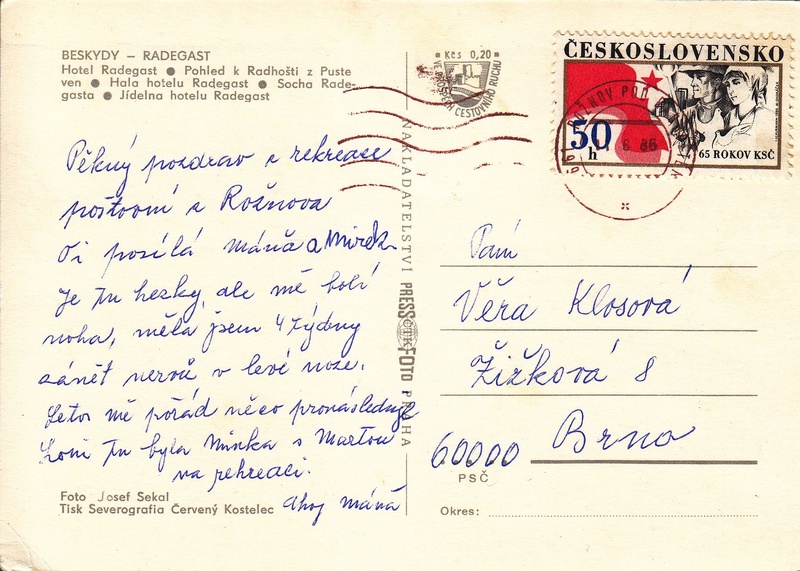 BESKYDY – RADEGAST
Hotel Radegast ● Pohled k Radhošti z Puste
ven ● Hala hotelu Radegast ● Socha Rade-
gasta ● Jídelna hotelu Radegast
Kčs 0,20
VE PROSPĚCH CESTOVNÍHO RUCHU
ČESKOSLOVENSKO
50
h
65 ROKOV KSČ
ROŽNOV POD
6 86
Pěkný pozdrav z rekreace
poštovní z Rožnova
Ti posílá Máňa a Mirek.
Je tu hezky, ale mě bolí
noha, měla jsem 4 týdny
zánět nervů v levé noze.
Letos mě pořád něco pronásleduje
Loni tu byla Minka s Martou
na rekreaci.
Ahoj Máňa
Foto Josef Sekal
Tisk Severografia Červený Kostelec
NAKLADATELSTVÍ PRESSFOTO PRAHA
ČTK
Paní
Věra Klosová
Žižková 8
60000 Brno
PSČ
Okres: